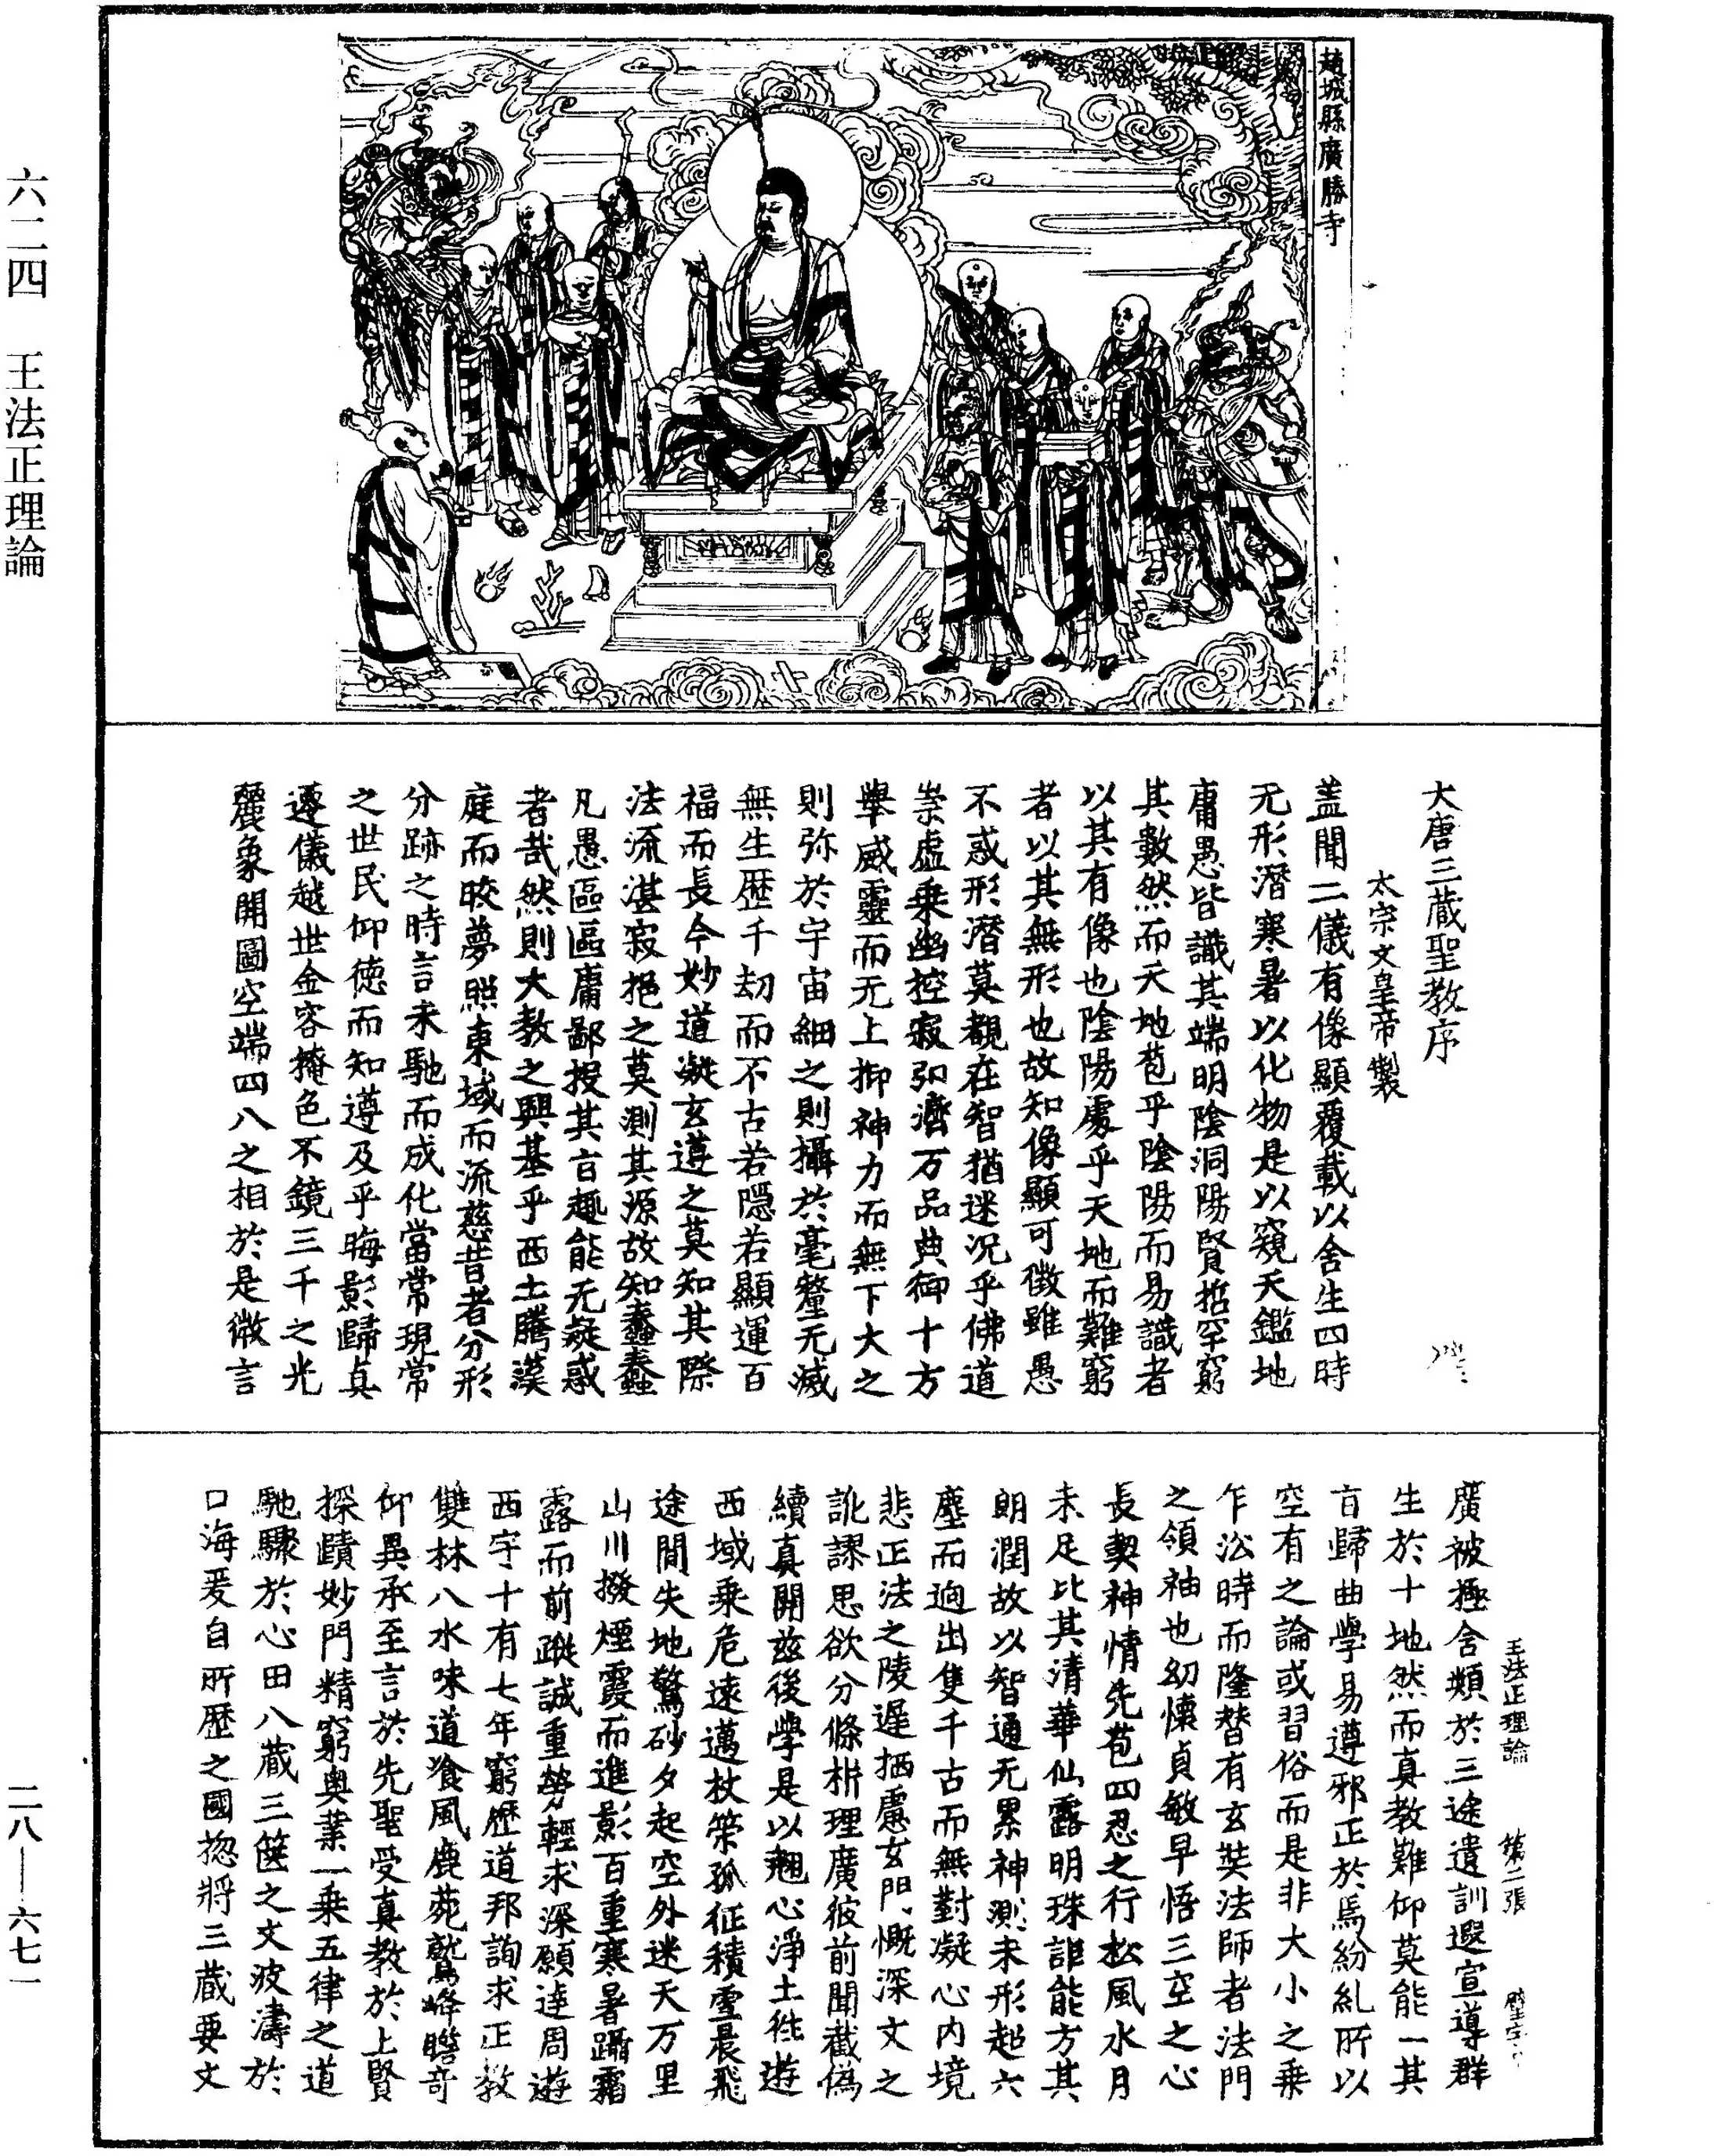 六二四　王法正理論
趙城縣廣勝寺
大唐三藏聖教序
太宗文皇帝製
盖聞二儀有像顯覆載以含生四時
无形潛寒暑以化物是以窺天鑑地
庸愚皆識其端明陰洞陽賢哲罕窮
其數然而天地苞乎陰陽而易識者
以其有像也陰陽處乎天地而難窮
者以其無形也故知像顯可徵雖愚
不惑形潛莫覩在智猶迷況乎佛道
崇虛乗幽控寂弘濟万品典御十方
舉威靈而无上抑神力而無下大之
則弥於宇宙細之則攝於毫釐无滅
無生歷千劫而不古若隱若顯運百
福而長今妙道凝玄遵之莫知其際
法流湛寂挹之莫測其源故知蠢蠢
凡愚區區庸鄙投其旨趣能无疑惑
者哉然則大教之興基乎西土騰漢
庭而皎夢照東域而流慈昔者分形
分跡之時言未馳而成化當常現常
之世民仰德而知遵及乎晦影歸真
遷儀越世金容掩色不鏡三千之光
麗象開圖空端四八之相於是微言
王法正理論　第二張　壁字
廣被拯含類於三途遺訓遐宣導群
生於十地然而真教難仰莫能一其
旨歸曲學易遵邪正於焉紛糺所以
空有之論或習俗而是非大小之乗
乍沿時而隆替有玄奘法師者法門
之領袖也幼懷貞敏早悟三空之心
長契神情先苞四忍之行松風水月
未足比其清華仙露明珠詎能方其
朗潤故以智通无累神測未形超六
塵而逈出隻千古而無對凝心內境
悲正法之陵遲栖慮玄門慨深文之
訛謬思欲分條析理廣彼前聞截偽
續真開茲後學是以翹心淨土往遊
西域乗危遠邁杖策孤征積雪晨飛
途間失地驚砂夕起空外迷天万里
山川撥煙霞而進影百重寒暑躡霜
露而前蹤誠重勞輕求深願達周遊
西宇十有七年窮歷道邦詢求正教
雙林八水味道飡風鹿菀鷲峰瞻奇
仰異承至言於先聖受真教於上賢
探賾妙門精窮奥業一乗五律之道
馳驟於心田八藏三篋之文波濤於
口海爰自所歷之國揔將三藏要文
二八—六七一